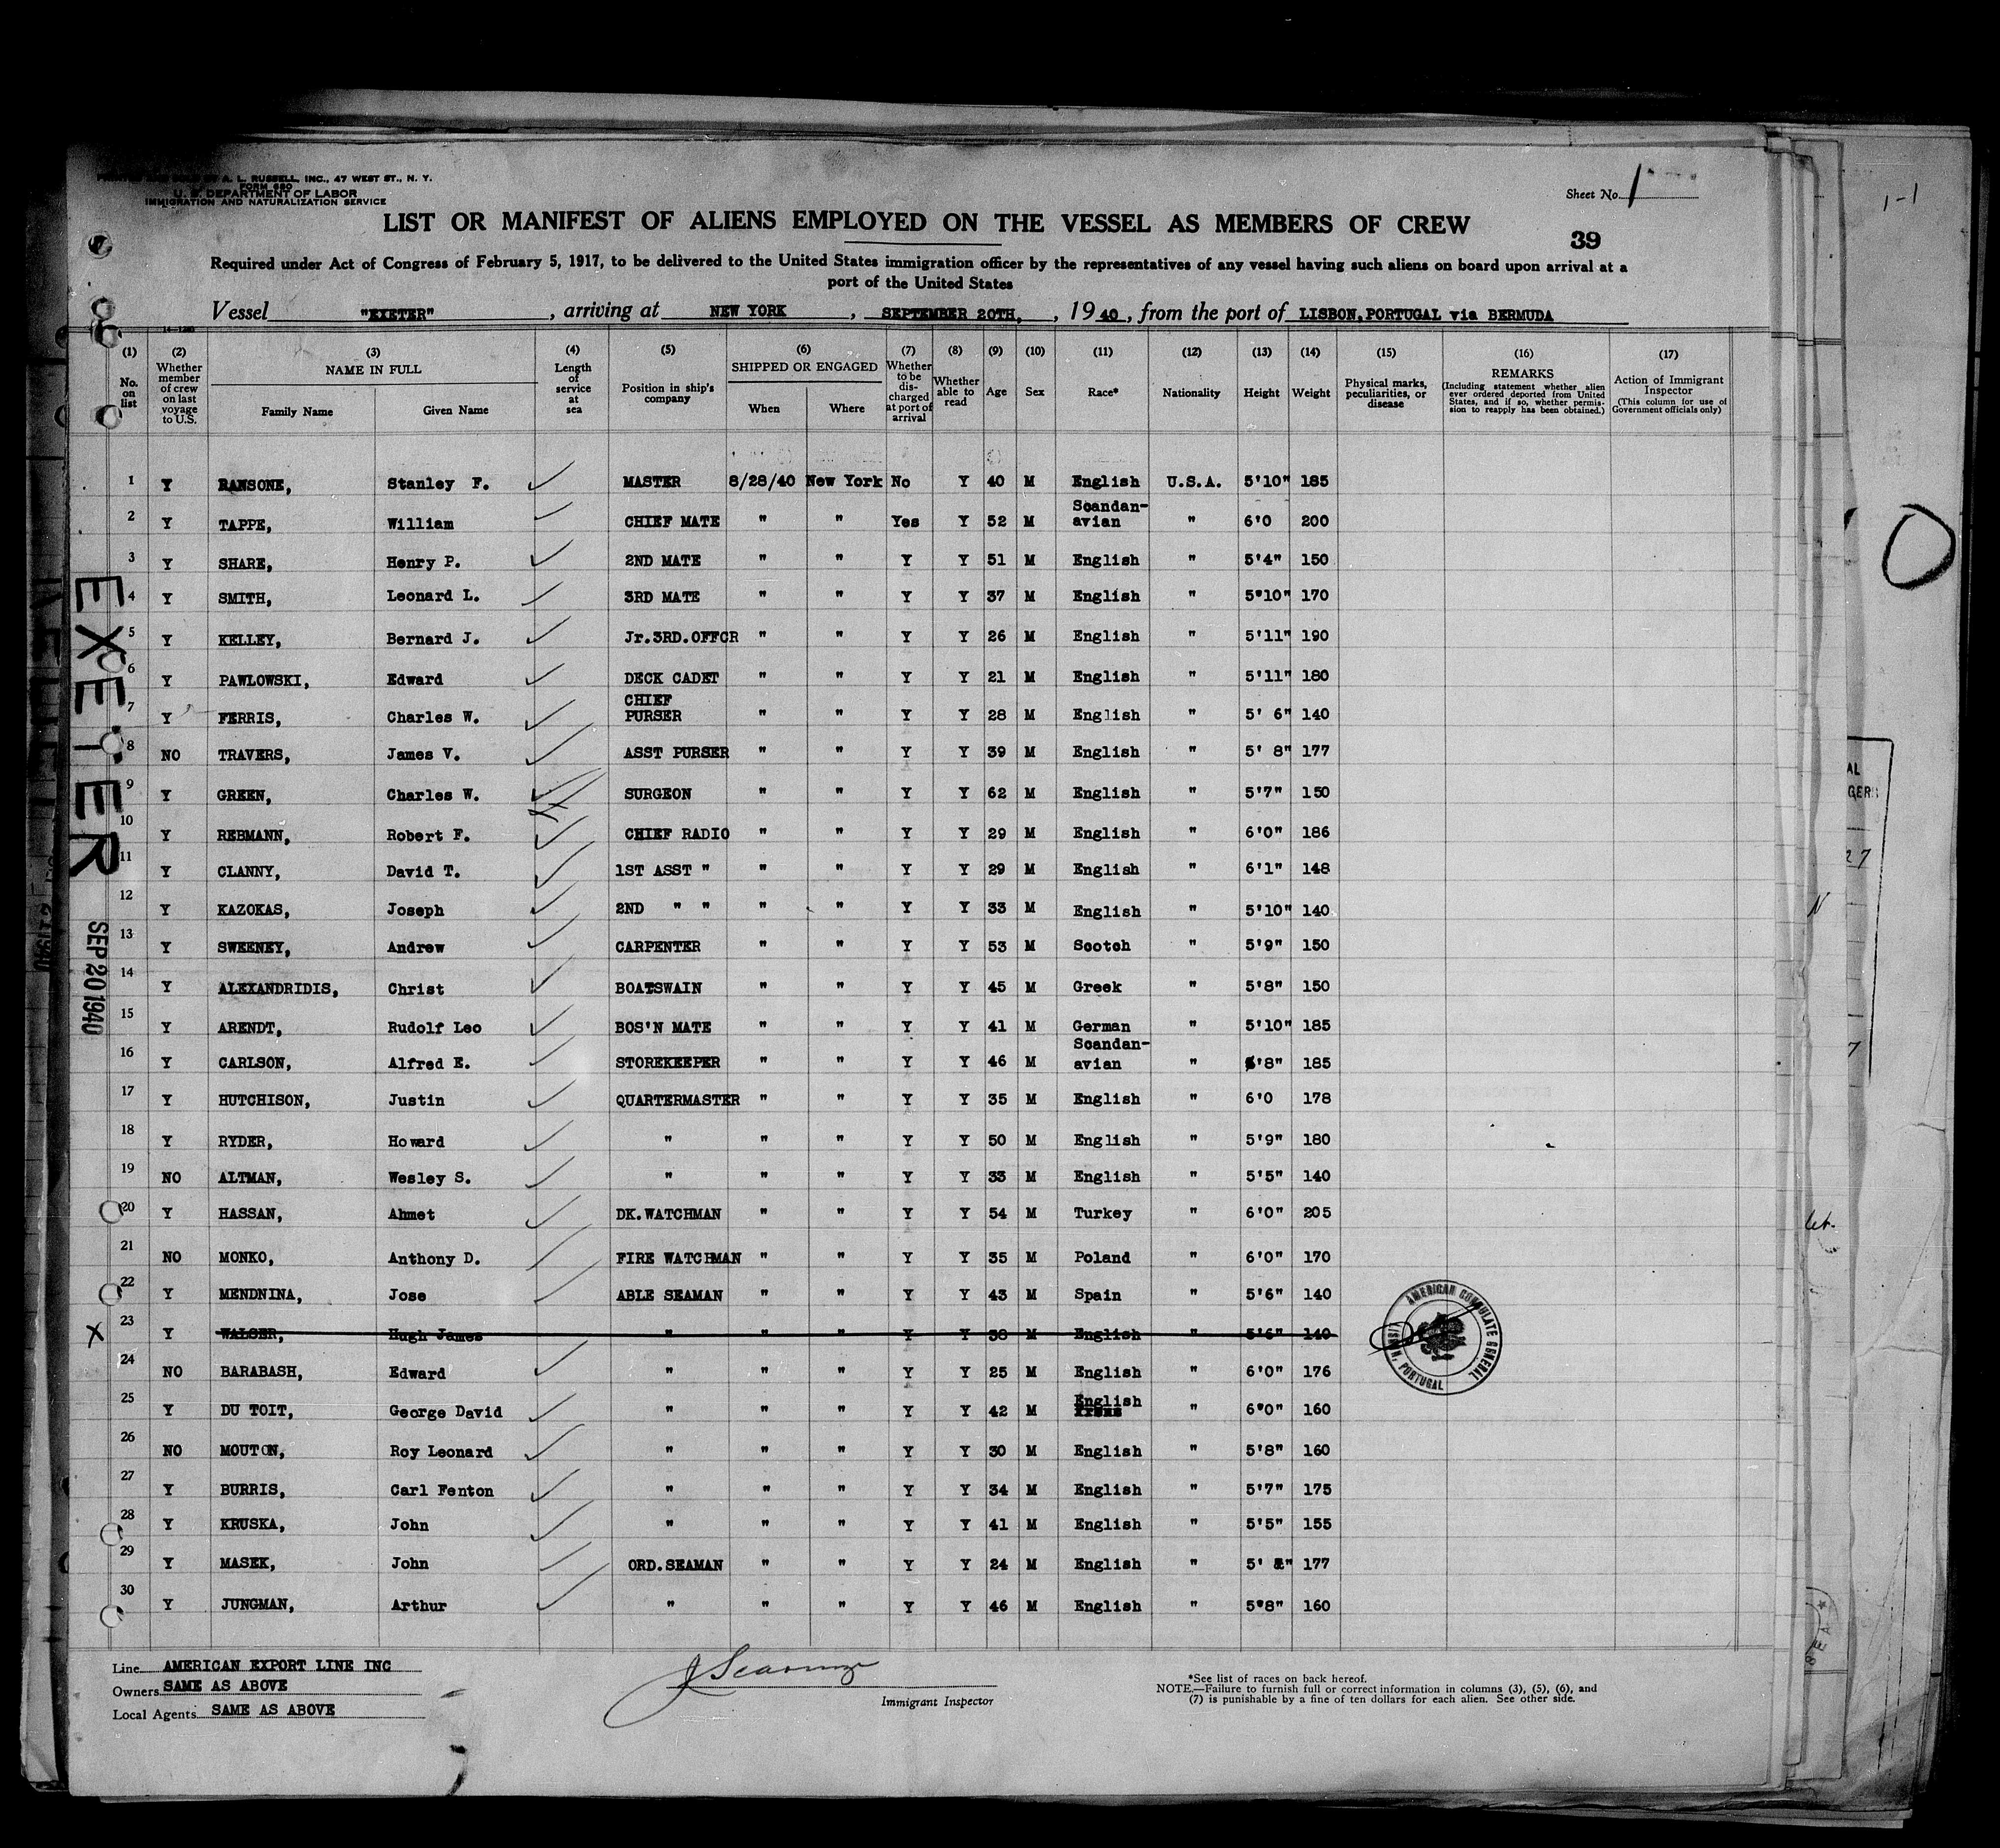 A. L. RUSSELL, INC., 47 WEST ST., N. Y.
FORM 680
U. S. DEPARTMENT OF LABOR
IMMIGRATION AND NATURALIZATION SERVICE
Sheet No. 1
1-1
LIST OR MANIFEST OF ALIENS EMPLOYED ON THE VESSEL AS MEMBERS OF CREW
39
Required under Act of Congress of February 5, 1917, to be delivered to the United States immigration officer by the representatives of any vessel having such aliens on board upon arrival at a
port of the United States
Vessel "EXETER", arriving at NEW YORK, SEPTEMBER 20TH, , 1940, from the port of LISBON, PORTUGAL via BERMUDA
(1) No. on list (2) Whether member of crew on last voyage to U.S. (3) NAME IN FULL Family Name Given Name (4) Length of service at sea (5) Position in ship's company (6) SHIPPED OR ENGAGED When Where (7) Whether to be discharged at port of arrival (8) Whether able to read (9) Age (10) Sex (11) Race* (12) Nationality (13) Height (14) Weight (15) Physical marks, peculiarities, or disease (16) REMARKS (Including statement whether alien ever ordered deported from United States, and if so, whether permission to reapply has been obtained.) (17) Action of Immigrant Inspector (This column for use of Government officials only)
1 Y RANSONE, Stanley F. MASTER 8/28/40 New York No Y 40 M English U.S.A. 5'10" 185
2 Y TAPPE, William CHIEF MATE " " Yes Y 52 M Scandan-avian " 6'0 200
3 Y SHARE, Henry P. 2ND MATE " " Y Y 51 M English " 5'4" 150
4 Y SMITH, Leonard L. 3RD MATE " " Y Y 37 M English " 5"10" 170
5 Y KELLEY, Bernard J. Jr.3RD.OFFCR " " Y Y 26 M English " 5'11" 190
6 Y PAWLOWSKI, Edward DECK CADET " " Y Y 21 M English " 5'11" 180
7 Y FERRIS, Charles W. CHIEF PURSER " " Y Y 28 M English " 5' 6" 140
8 NO TRAVERS, James V. ASST PURSER " " Y Y 39 M English " 5' 8" 177
9 Y GREEN, Charles W. SURGEON " " Y Y 62 M English " 5'7" 150
10 Y REBMANN, Robert F. CHIEF RADIO " " Y Y 29 M English " 6'0" 186
11 Y CLANNY, David T. 1ST ASST " " " Y Y 29 M English " 6'1" 148
12 Y KAZOKAS, Joseph 2ND " " " " Y Y 33 M English " 5'10" 140
13 Y SWEENEY, Andrew CARPENTER " " Y Y 53 M Scotch " 5'9" 150
14 Y ALEXANDRIDIS, Christ BOATSWAIN " " Y Y 45 M Greek " 5'8" 150
15 Y ARENDT, Rudolf Leo BOS'N MATE " " Y Y 41 M German " 5'10" 185
16 Y CARLSON, Alfred E. STOREKEEPER " " Y Y 46 M Scandan-avian " '8" 185
17 Y HUTCHISON, Justin QUARTERMASTER " " Y Y 35 M English " 6'0 178
18 Y RYDER, Howard " " " Y Y 50 M English " 5'9" 180
19 NO ALTMAN, Wesley S. " " " Y Y 33 M English " 5'5" 140
20 Y HASSAN, Ahmet DK.WATCHMAN " " Y Y 54 M Turkey " 6'0" 205
21 NO MONKO, Anthony D. FIRE WATCHMAN " " Y Y 35 M Poland " 6'0" 170
22 Y MENDNINA, Jose ABLE SEAMAN " " Y Y 43 M Spain " 5'6" 140
X 23 Y Hugh James " " " Y Y 38 M English " 5'6" 140
24 NO BARABASH, Edward " " " Y Y 25 M English " 6'0" 176
25 Y DU TOIT, George David " " " Y Y 42 M English " 6"0" 160
26 NO MOUTON, Roy Leonard " " " Y Y 30 M English " 5'8" 160
27 Y BURRIS, Carl Fenton " " " Y Y 34 M English " 5'7" 175
28 Y KRUSKA, John " " " Y Y 41 M English " 5'5" 155
29 Y MASEK, John ORD.SEAMAN " " Y Y 24 M English " 5' 177
30 Y JUNGMAN, Arthur " " " Y Y 46 M English " 5"8" 160
EXETER
SEP 20 1940
AMERICAN CONSULATE GENERAL
PORTUGAL
Line AMERICAN EXPORT LINE INC
Owners SAME AS ABOVE
Local Agents SAME AS ABOVE
Immigrant Inspector
*See list of races on back hereof.
NOTE.—Failure to furnish full or correct information in columns (3), (5), (6), and
(7) is punishable by a fine of ten dollars for each alien. See other side.